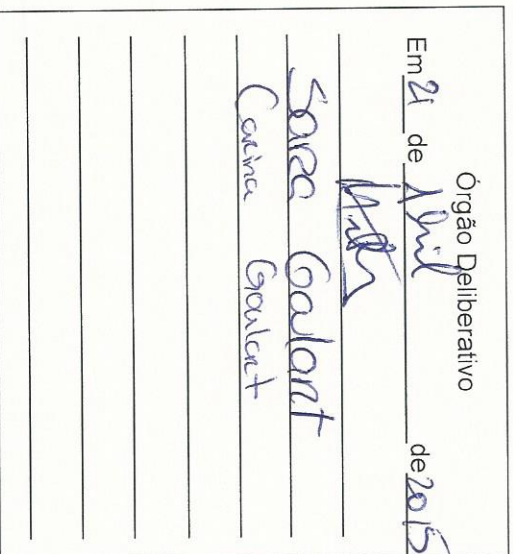 Órgão Deliberativo
Em 21 de Abril de 2015
Sara Galant
Carina Goulart